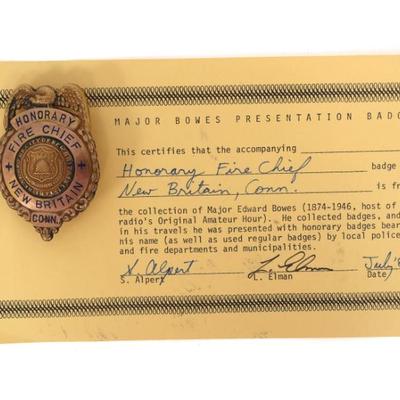 HONORARY
FIRE CHIEF
NEW BRITAIN
CONN.
MAJOR BOWES PRESENTATION BADG
This certifies that the accompanying
Honorary Fire Chief badge
New Britain, Conn. is fr
the collection of Major Edward Bowes (1874-1946, host of
radio's Original Amateur Hour). He collected badges, and
in his travels he was presented with honorary badges bear
his name (as well as used regular badges) by local police
and fire departments and municipalities.
S. Alpert L. Elman July '8
S. Alpert L. Elman Date